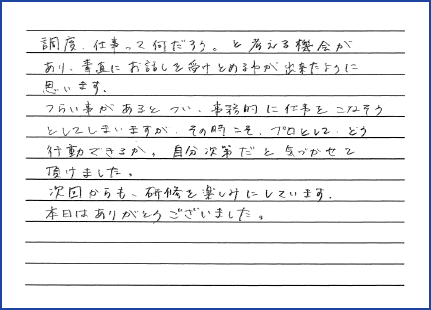 調度、仕事って何だろう。と考える機会が
あり、素直にお話しを受けとめる事が出来たように
思います。
つらい事があると つい、事務的に仕事をこなそう
としてしまいますが、その時こそ、プロとして、どう
行動できるか。自分次第だと気づかせて
頂けました。
次回からも、研修を楽しみにしています。
本日はありがとうございました。